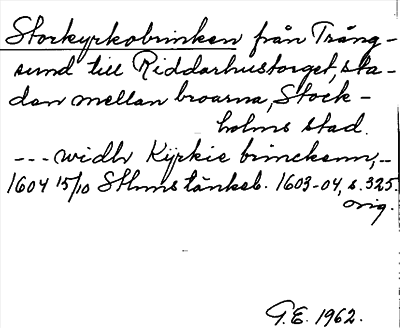 Storkyrkobrinken från Trång-
sund till Riddarhustorget, sta-
den mellan broarna, Stock-
holms stad.
--- widh Kyrkie brinckenn, --
1604 15/10 Sthms tänkeb. 1603-04, s. 325.
orig.
G.E. 1962.